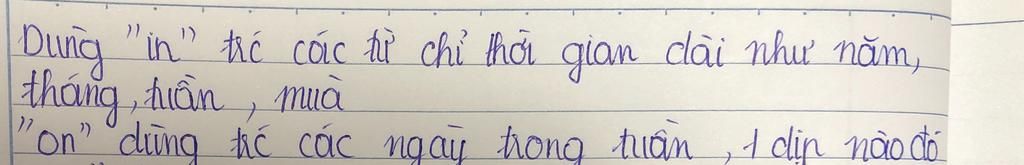 Dùng "in" trc các từ chỉ thời gian dài như năm,
tháng, tuần, mùa
"on" dùng trc các ngày trong tuần, 1 dịp nào đó